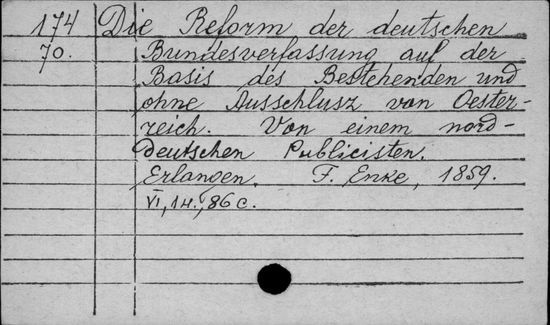 174 Die Reform der deutschen
70. Bundesverfassung auf der
Basis des Bestehenden und
ohne Ausschlusz von Oester-
reich. Von einem nord-
deutschen Publicisten.
Erlangen. F. Enke, 1859.
VI, 1 H., 86 c.